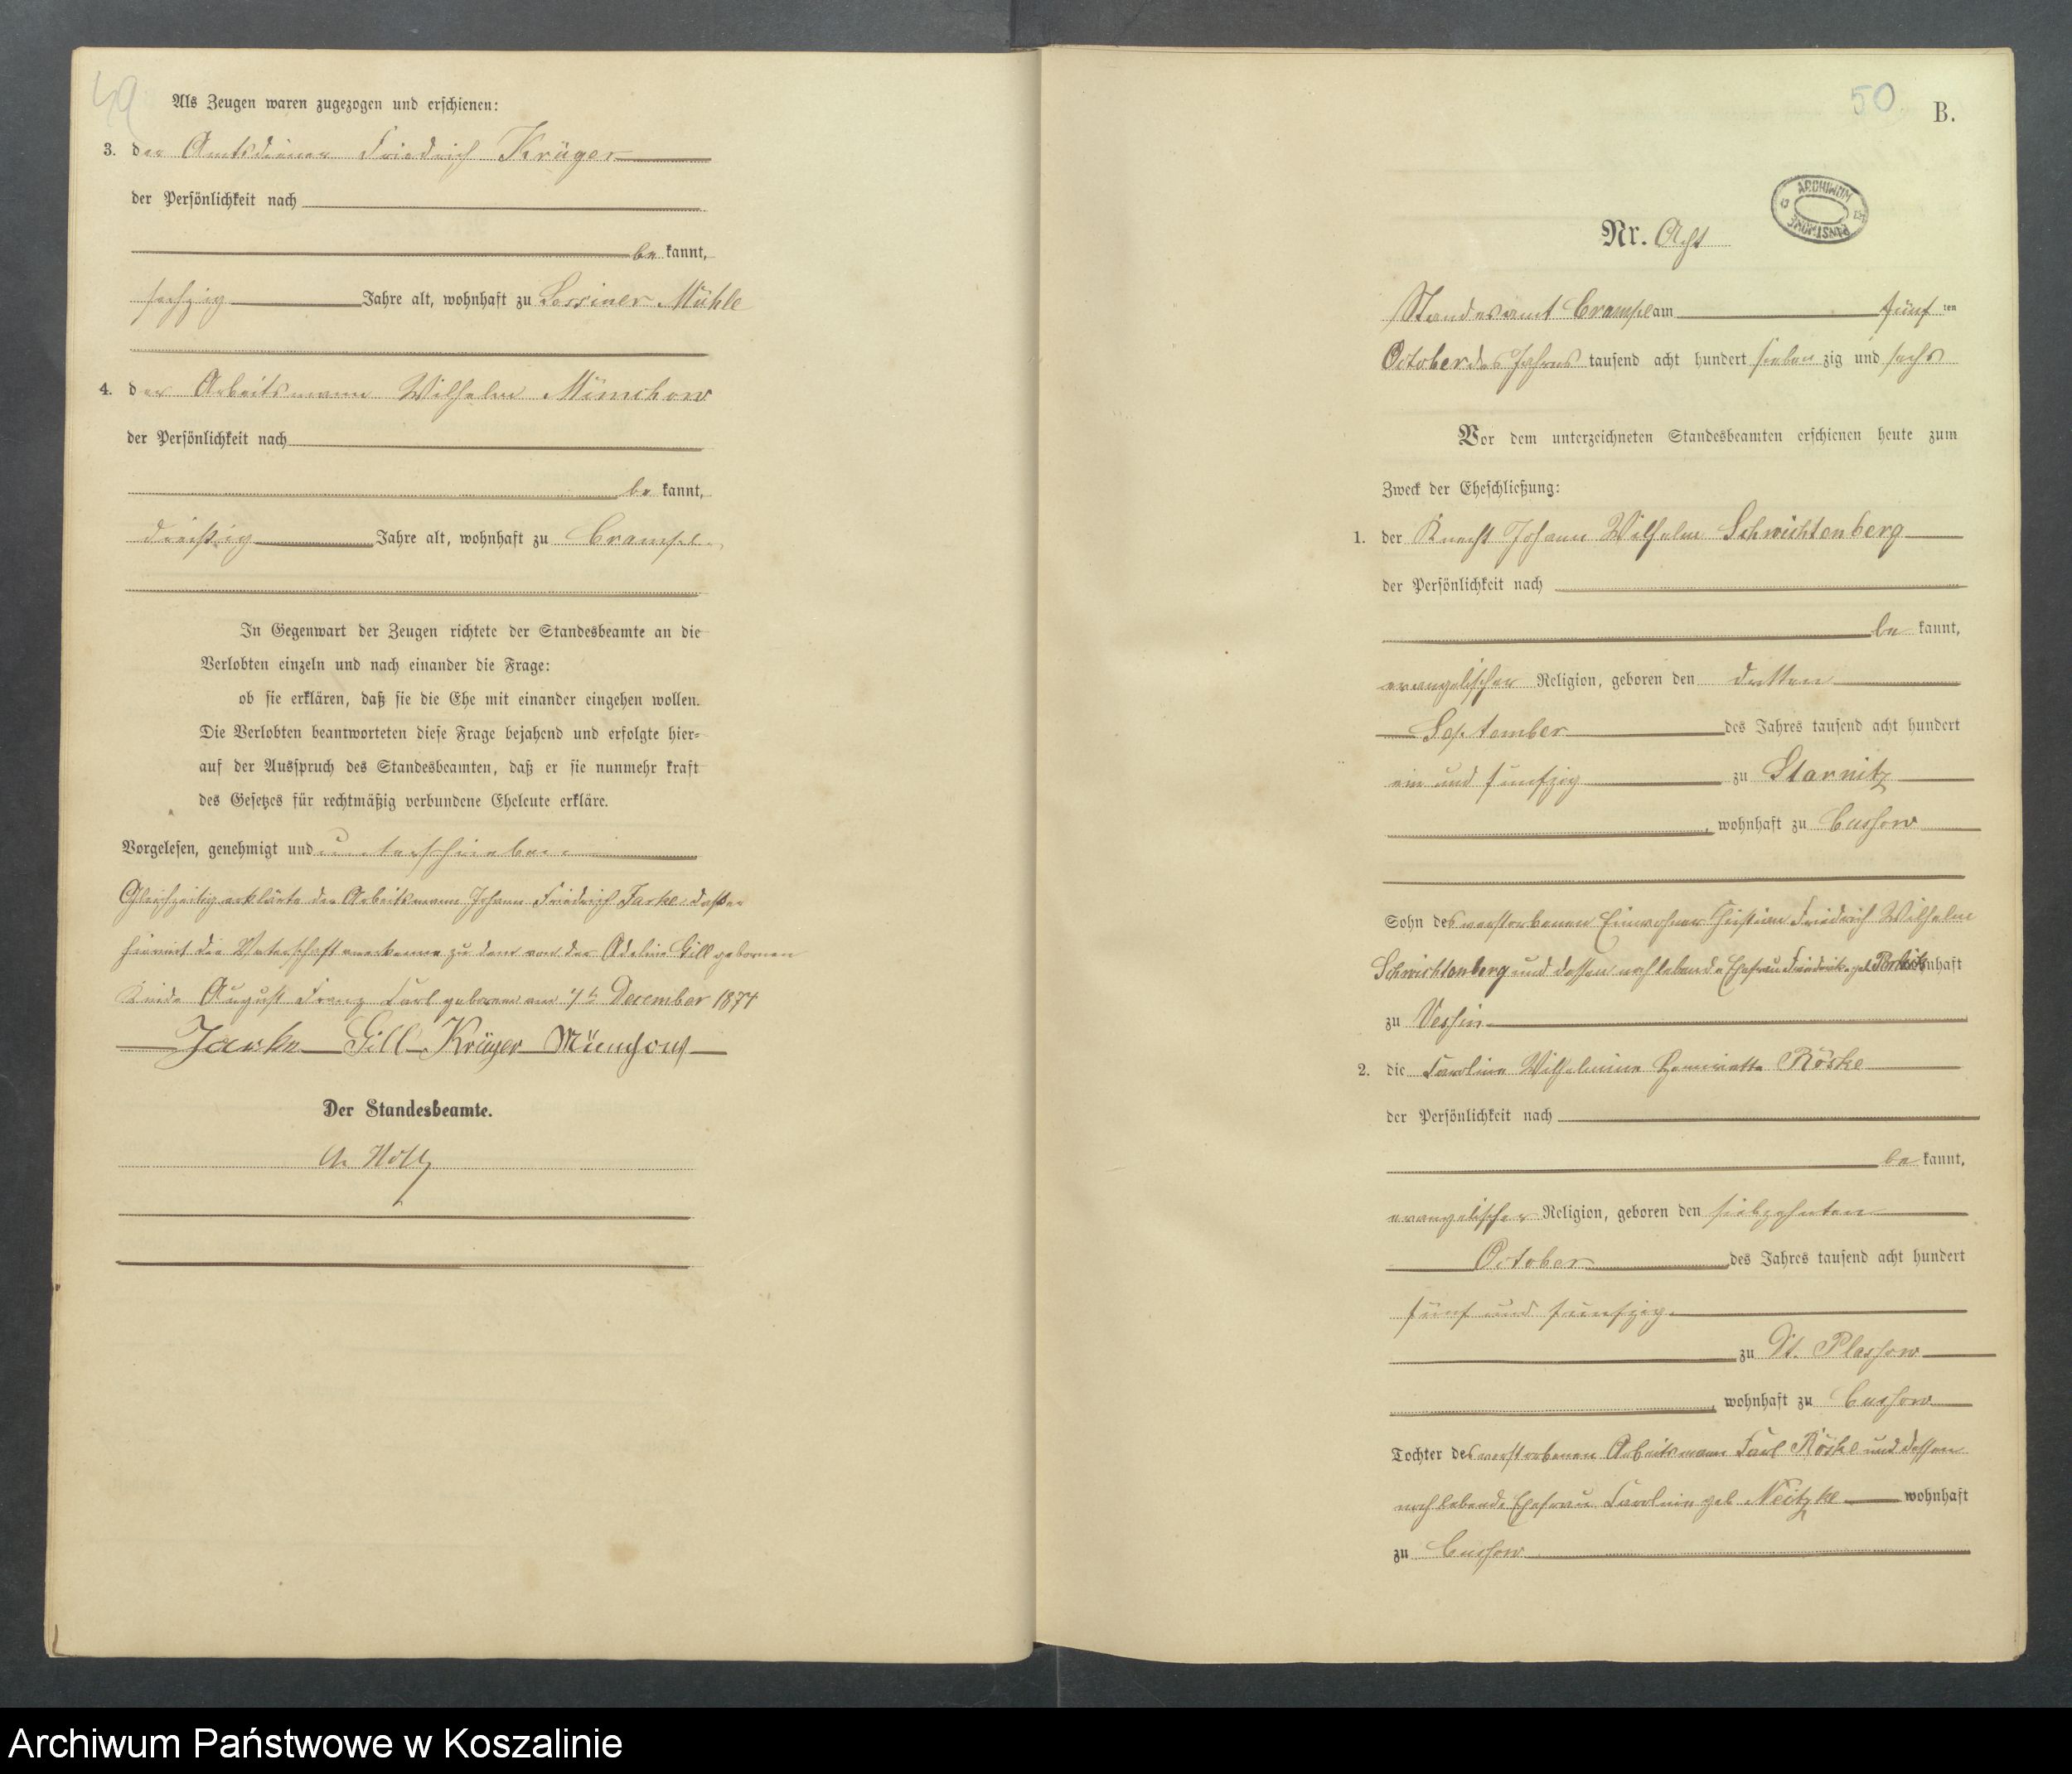 49
Als Zeugen waren zugezogen und erschienen:
3. der Amtsdiener Friedrich Krüger
der Persönlichkeit nach
be kannt,
sechzig Jahre alt, wohnhaft zu Lossiner Mühle
4. der Arbeitsmann Wilhelm Münchow
der Persönlichkeit nach
be kannt,
dreißig Jahre alt, wohnhaft zu Crampe
In Gegenwart der Zeugen richtete der Standesbeamte an die
Verlobten einzeln und nach einander die Frage:
ob sie erklären, daß sie die Ehe mit einander eingehen wollen.
Die Verlobten beantworteten diese Frage bejahend und erfolgte hier-
auf der Ausspruch des Standesbeamten, daß er sie nunmehr kraft
des Gesetzes für rechtmäßig verbundene Eheleute erkläre.
Vorgelesen, genehmigt und unterschrieben
Gleichzeitig erklärte der Arbeitsmann Johann Friedrich Jarke, daß er
hiermit die Vaterschaft anerkenne zu dem von der Adeline Gill geborenen
Kinde August Franz Carl geboren am December 1874
Jarke Gill Krüger Münchow
Der Standesbeamte.
50
B.
ARCHIWUM PAŃSTWOWE
Nr. Acht
Standesamt Crampe am fünf ten
October des Jahres tausend acht hundert sieben zig und sechs
Vor dem unterzeichneten Standesbeamten erschienen heute zum
Zweck der Eheschließung:
1. der Knecht Johann Wilhelm Schwichtenberg
der Persönlichkeit nach
be kannt,
evangelischer Religion, geboren den dritten
September des Jahres tausend acht hundert
ein und fünfzig zu Starnitz
, wohnhaft zu Cussow
Sohn des verstorbenen Einwohner Christian Friedrich Wilhelm
Schwichtenberg und dessen noch lebende Ehefrau Friederike geb. wohnhaft
zu Vessin
2. die Caroline Wilhelmine Henriette Röske
der Persönlichkeit nach
be kannt,
evangelischer Religion, geboren den siebzehnten
October des Jahres tausend acht hundert
fünf und fünfzig
zu Plassow
, wohnhaft zu Cussow
Tochter des verstorbenen Arbeitsmann Carl Röske und dessen
noch lebende Ehefrau Carolin geb. Neitzke wohnhaft
zu Cussow
Archiwum Państwowe w Koszalinie